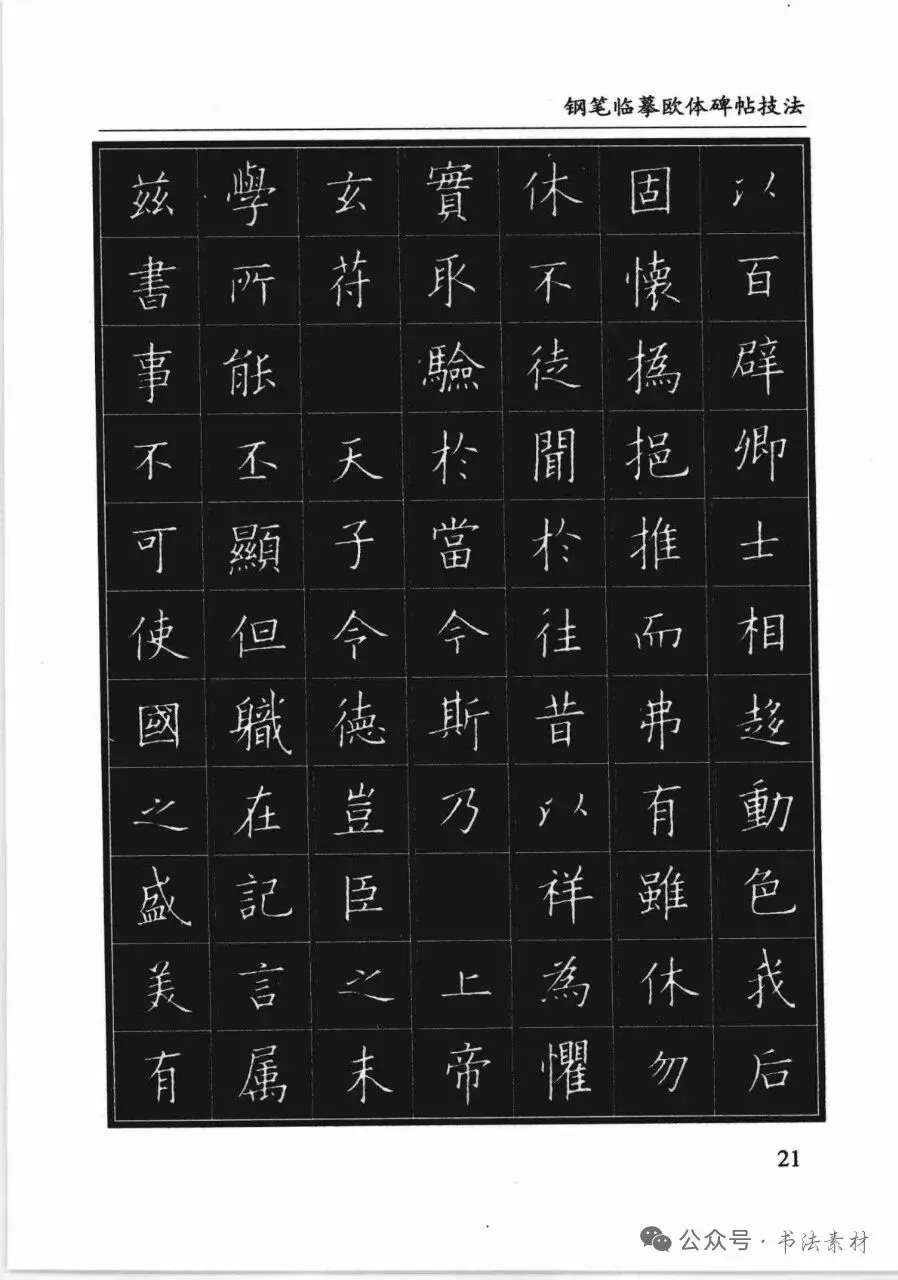 钢笔临摹欧体碑帖技法
以百辟卿士相趍動色我后
固懷撝挹推而弗有雖休勿
休不徒聞於往昔以祥為懼
實取驗於當今斯乃 上帝
玄符 天子令德豈臣之末
學所能丕顯但職在記言属
兹書事不可使國之盛美有
21
公众号·书法素材